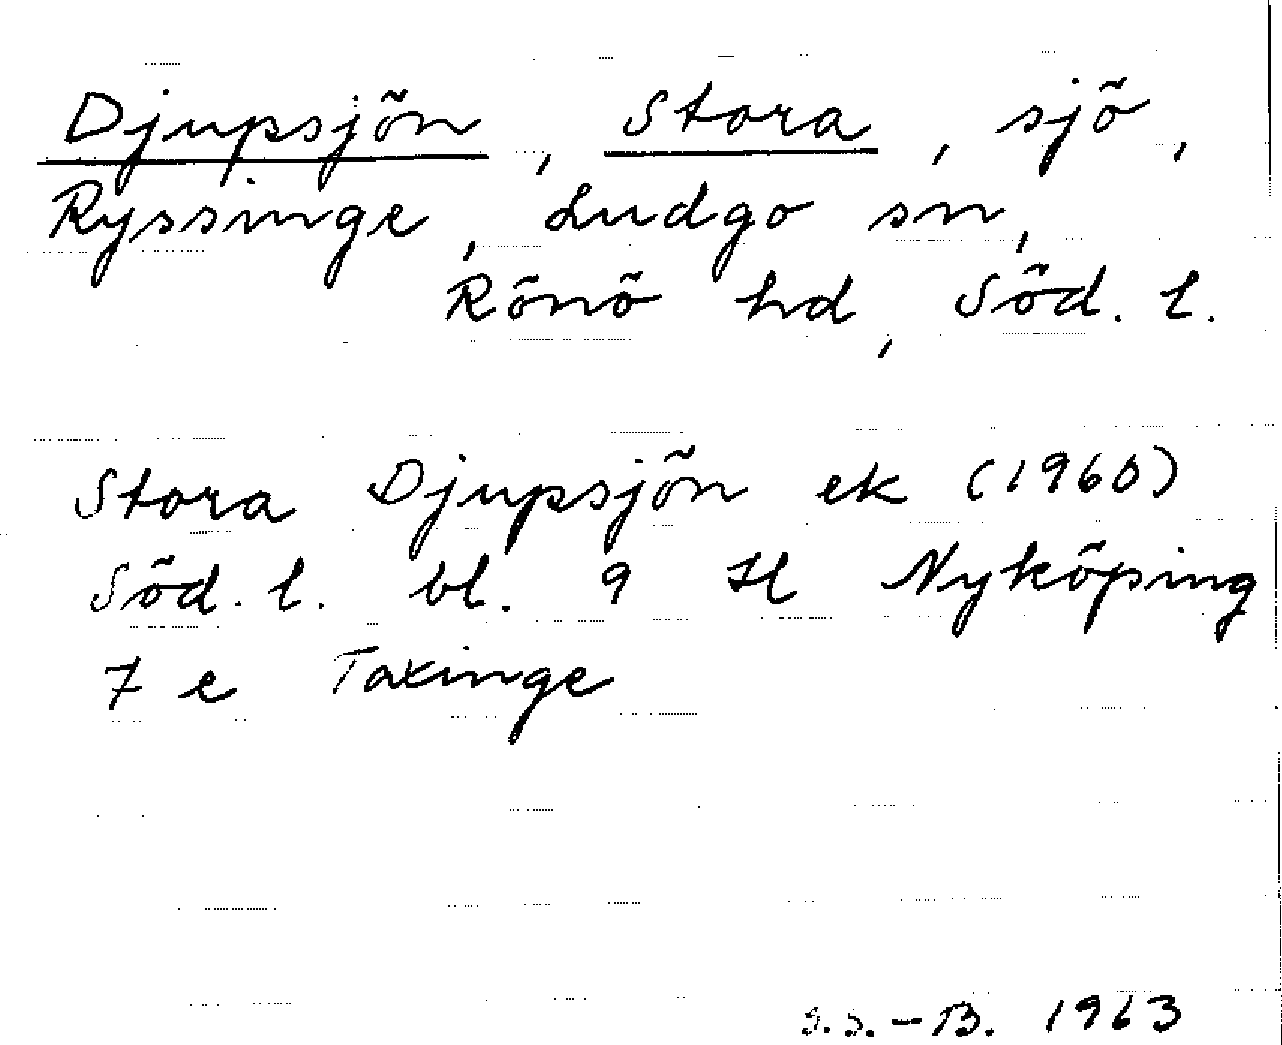 Djupsjön, Stora, sjö,
Ryssinge, Ludgo sn,
Rönö hd, Söd. l.
Stora Djupsjön ek (1960)
Söd. l. bl. 9 H Nyköping
7 e Taxinge
S.S.-B. 1963